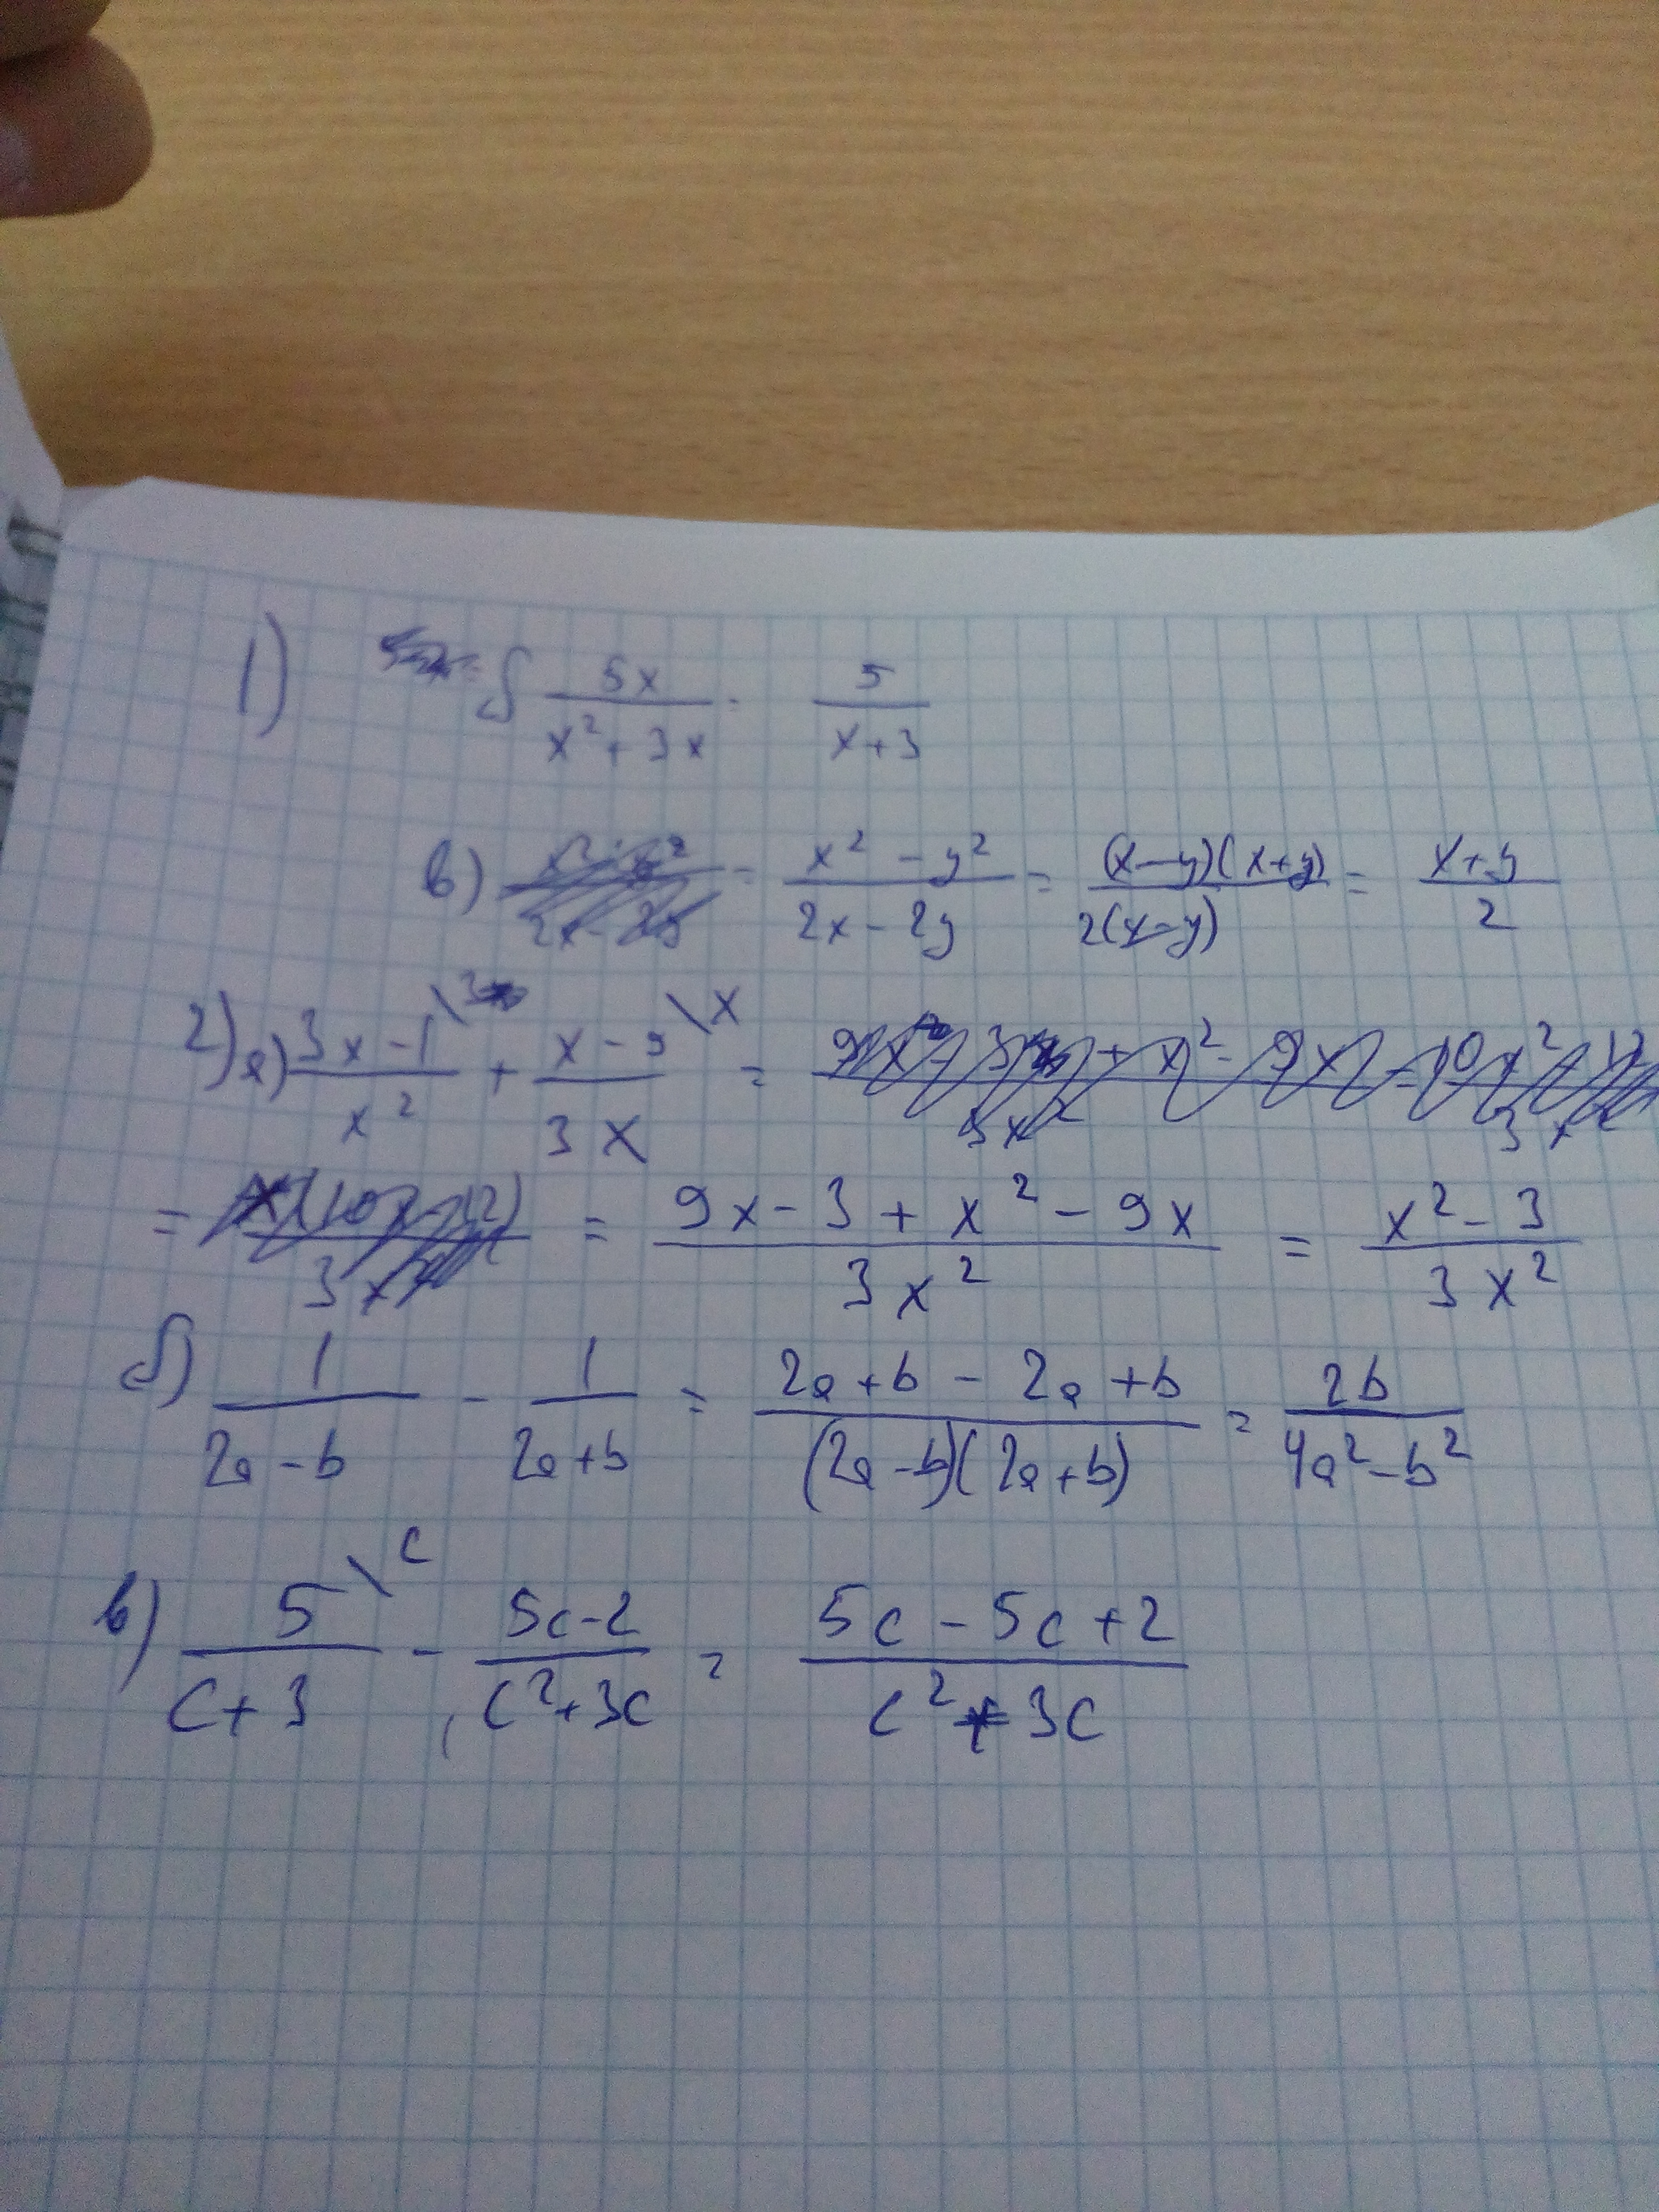 1) б 5x/(x² + 3x) = 5/(x+3)
в) = (x² - y²)/(2x - 2y) = (x-y)(x+y)/(2(x-y)) = (x+y)/2
2) а) (3x-1)/x² \3 + (x-9)/(3x) \x =
= = (9x - 3 + x² - 9x)/(3x²) = (x² - 3)/(3x²)
б) 1/(2a-b) - 1/(2a+b) = (2a+b - 2a+b)/((2a-b)(2a+b)) = 2b/(4a²-b²)
в) 5/(c+3) \c - (5c-2)/(c²+3c) = (5c - 5c + 2)/(c² + 3c)